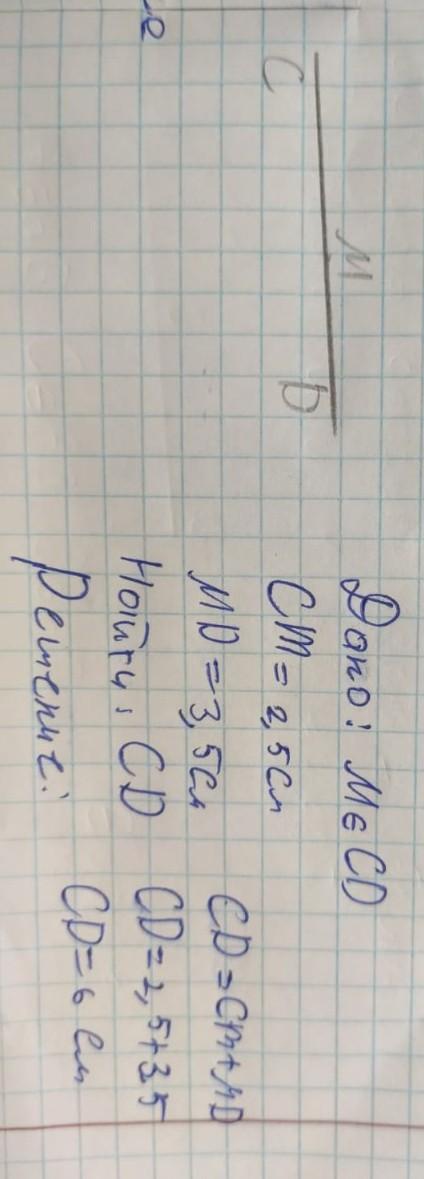 C M D
Дано: M ∈ CD
CM = 2,5 см
MD = 3,5 см
Найти: CD
Решение:
CD = CM + MD
CD = 2,5 + 3,5
CD = 6 см